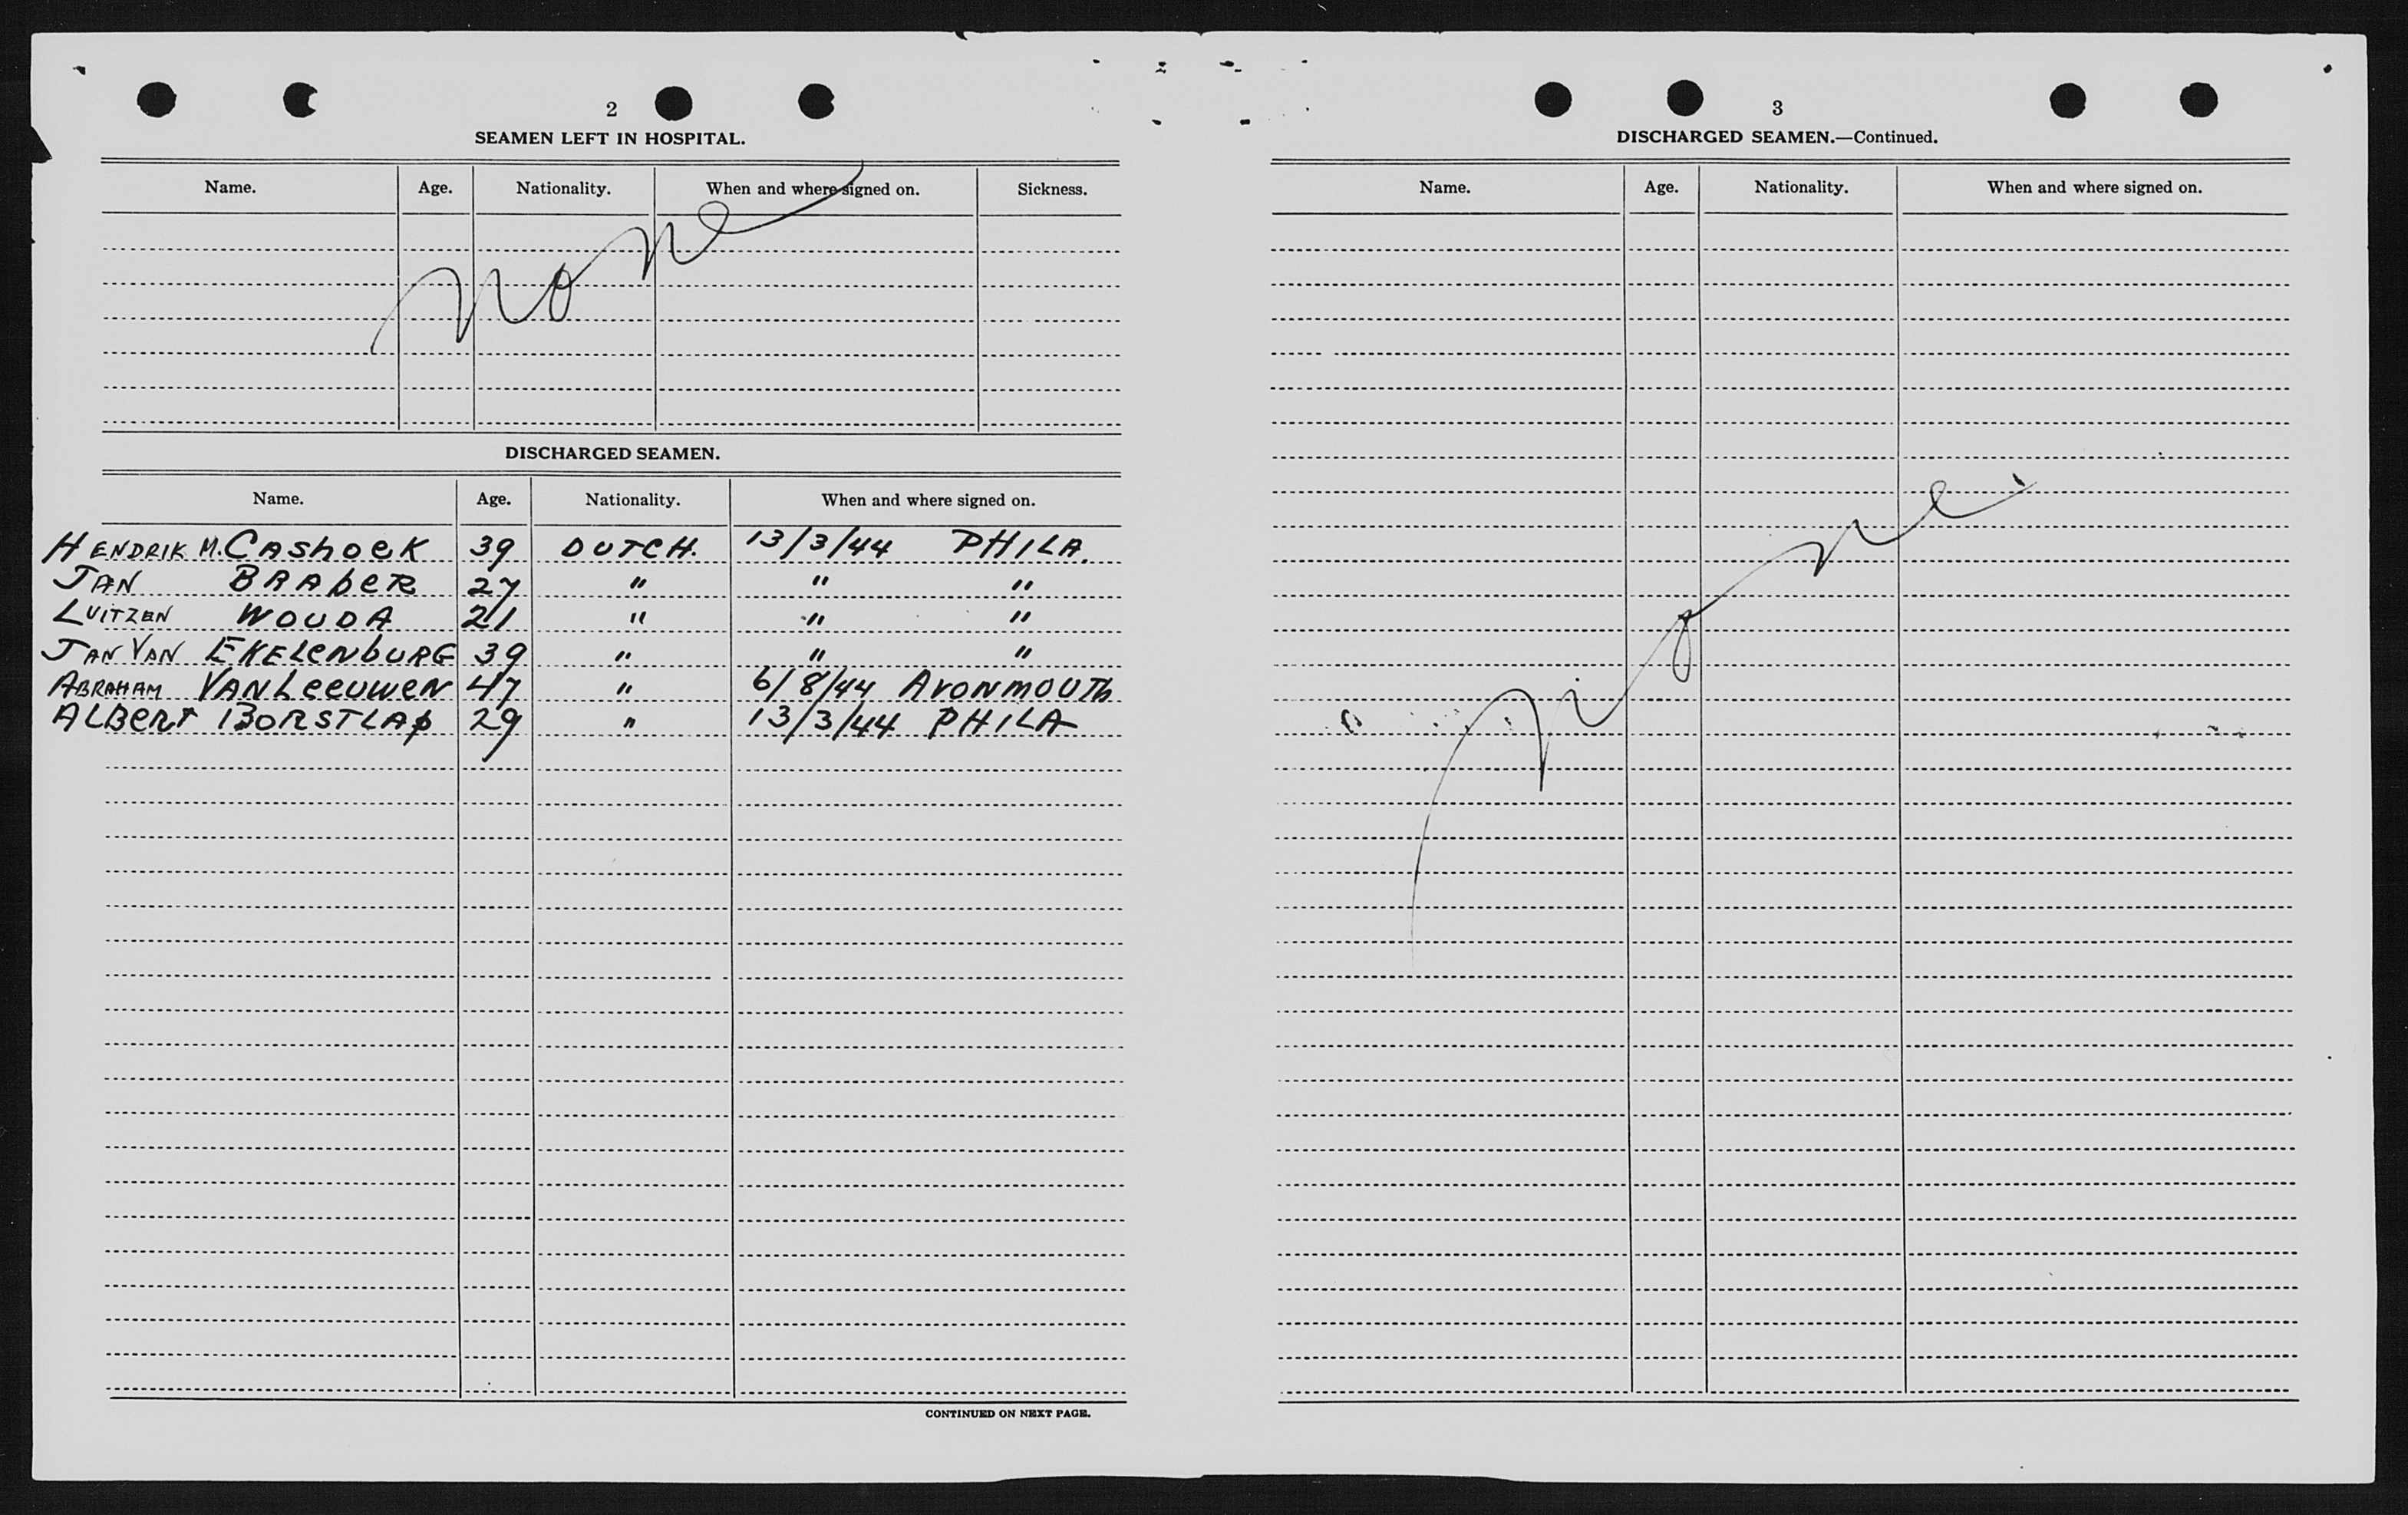 2
SEAMEN LEFT IN HOSPITAL.
Name. Age. Nationality. When and where signed on. Sickness.
None
DISCHARGED SEAMEN.
Name. Age. Nationality. When and where signed on.
HENDRIK M. CAShOeK 39 DUTCH. 13/3/44 PHILA.
JAN BRAbER 27 " " "
LUITZEN WOUDA 21 " " "
JAN VAN EKELeNbURG 39 " " "
ABRAHAM VANLeeUWeN 47 " 6/8/44 AVONMOUTh
ALBeRT BORSTLAp 29 " 13/3/44 PHILA
CONTINUED ON NEXT PAGE.
3
DISCHARGED SEAMEN.—Continued.
Name. Age. Nationality. When and where signed on.